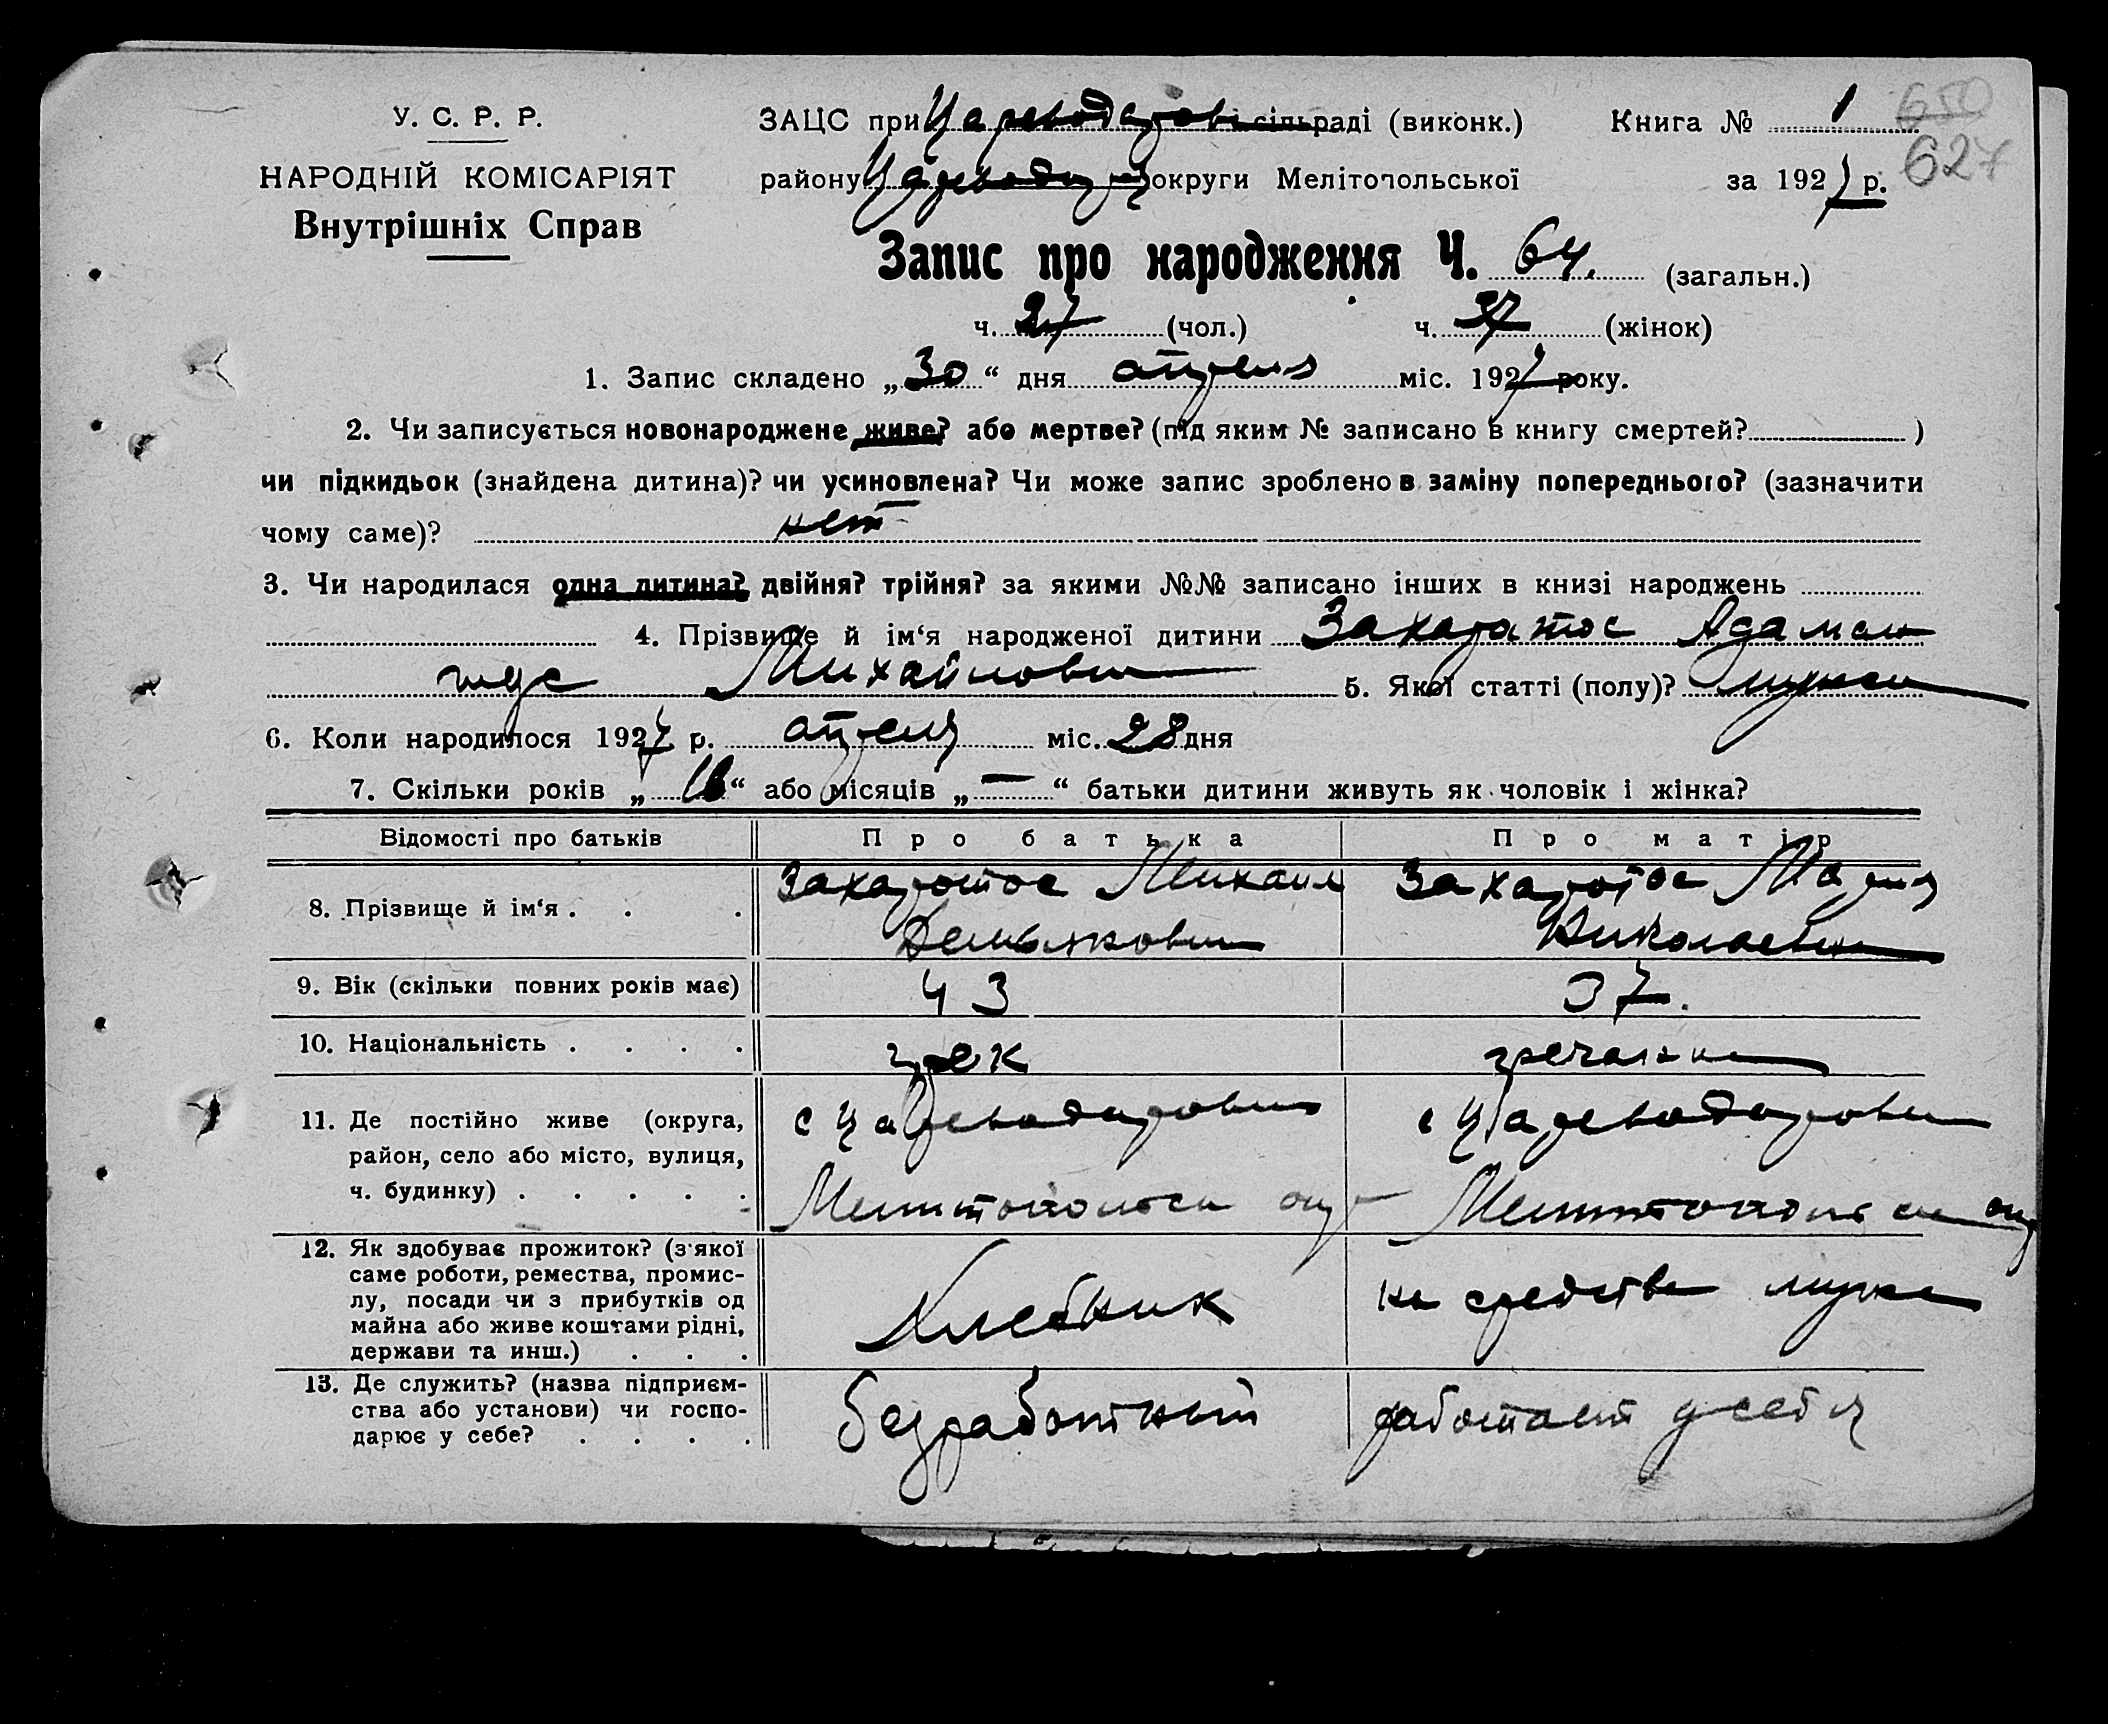 У. С. Р. Р.
НАРОДНІЙ КОМІСАРІЯТ
Внутрішніх Справ
ЗАЦС при Царевода сільраді (виконк.) Книга № 1
650
627
району округи Мелітопольської за 1927 р.
Запис про народження Ч. 64. (загальн.)
ч. 27 (чол.) ч. 37 (жінок)
1. Запис складено „30“ дня апреля міс. 1927 року.
2. Чи записується новонароджене живе? або мертве? (під яким № записано в книгу смертей? )
чи підкидьок (знайдена дитина)? чи усиновлена? Чи може запис зроблено в заміну попереднього? (зазначити
чому саме)? нет
3. Чи народилася одна дитина? двійня? трійня? за якими №№ записано інших в книзі народжень
4. Прізвище й ім‘я народженої дитини Захаратос
Михайлови 5. Якої статті (полу)?
6. Коли народилося 1927 р. апреля міс. 28 дня
7. Скільки років „ “ або місяців „—“ батьки дитини живуть як чоловік і жінка?
Відомості про батьків Про батька Про матір
8. Прізвище й ім‘я . . . Захаротос Михаил Захаротос Мария
Николаевн
9. Вік (скільки повних років має) 43 37.
10. Національність . . . . грек гречанка
11. Де постійно живе (округа, район, село або місто, вулиця, ч. будинку) . . . . . с Цареводаровка с Цареводаровка
Мелитопольск окр Мелитопольск окр
12. Як здобуває прожиток? (з'якої саме роботи, ремества, промислу, посади чи з прибутків од майна або живе коштами рідні, держави та инш.) . . . Хлебник на средства мужа
13. Де служить? (назва підприємства або установи) чи господарює у себе? . . . . безработный работает у себя